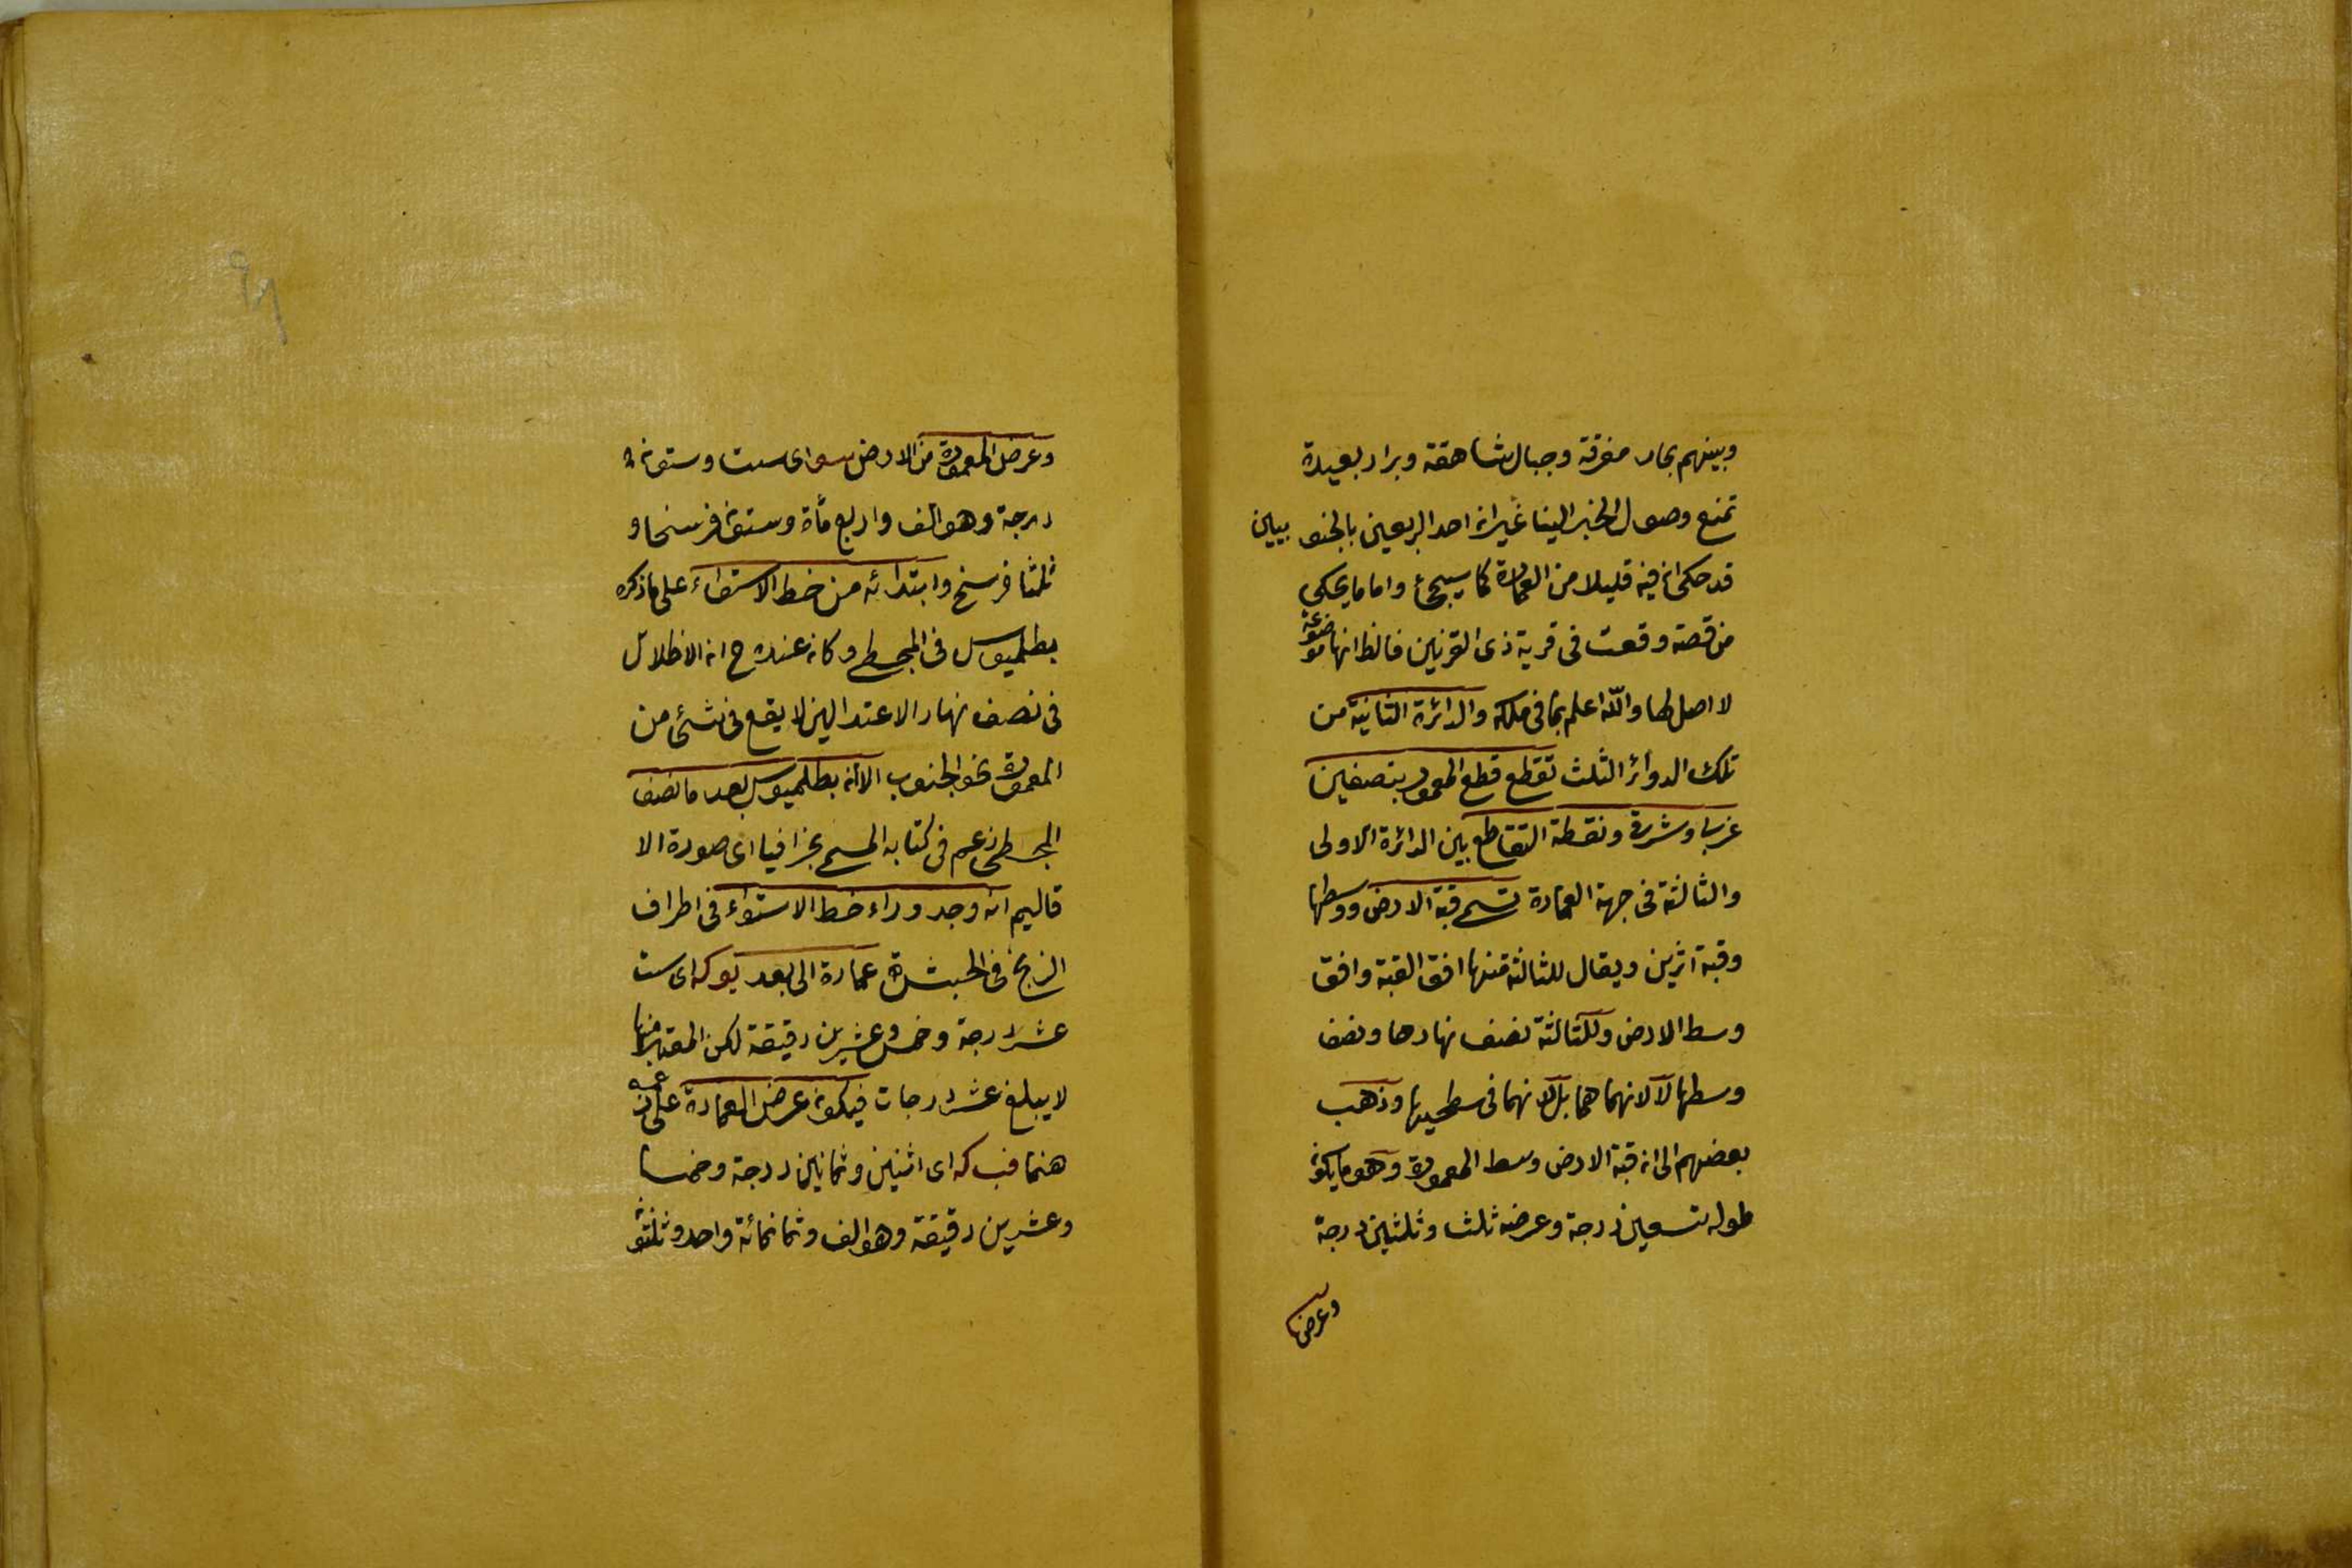 وبينهم بحار مغرقة وجبال شاهقة وبرار بعيدة
تمنع وصول الخبر الينا غير ان احد الربعين بالجنو بيين
قد حكى ان فيه قليلا من العمارة كما سيجئ واما ما يحكى
من قصة وقعت فى قرية ذى القرنين فالظ انها موضوعة
لا اصل لها والله اعلم بما فى ملكه والدائرة الثانية من
تلك الدوائر الثلث تقطع قطع المعمور بنصفين
غربى وشرقى ونقطة التقاطع بين الدائرة الاولى
والثالثة فى جهة العمارة تسمى قبة الارض ووسطها
وقبة ازين ويقال للثالثة منها افق القبة وافق
وسط الارض وللثالثة نصف نهارها ونصف
وسطها لا لانهما هما بل لانهما فى سطحيها وذهب
بعضهم الى ان قبة الارض وسط المعمورة وهو ما يكون
طوله تسعين درجة وعرضه ثلث وثلثين درجة
وعرضها
وعرض المعمورة من الارض سو اى ست وستون
درجة وهو الف واربع مأة وستون فرسخا و
ثلثا فرسخ وابتدائه من خط الاستواء على ما ذكره
بطلميوس فى المجسطى وكان عنده ح ان الاظلال
فى نصف نهار الاعتدالين لا يقع فى شئ من
المعمورة نحو الجنوب الا ان بطلميوس بعد ما نصف
المجسطى زعم فى كتابه المسمى بجغرافيا اى صورة الا
قاليم انه وجد وراء خط الاستواء فى اطراف
الزنج فى الحبشة عمارة الى بعد يو كه اى ست
عشر درجة وخمس وعشرين دقيقة لكن المعتبر منها
لا يبلغ عشر درجات فيكون عرض العمارة على
هنما فب كه اى اثنين وثمانين درجة وخمسا
وعشرين دقيقة وهو الف وثمانمائة واحد وثلثو